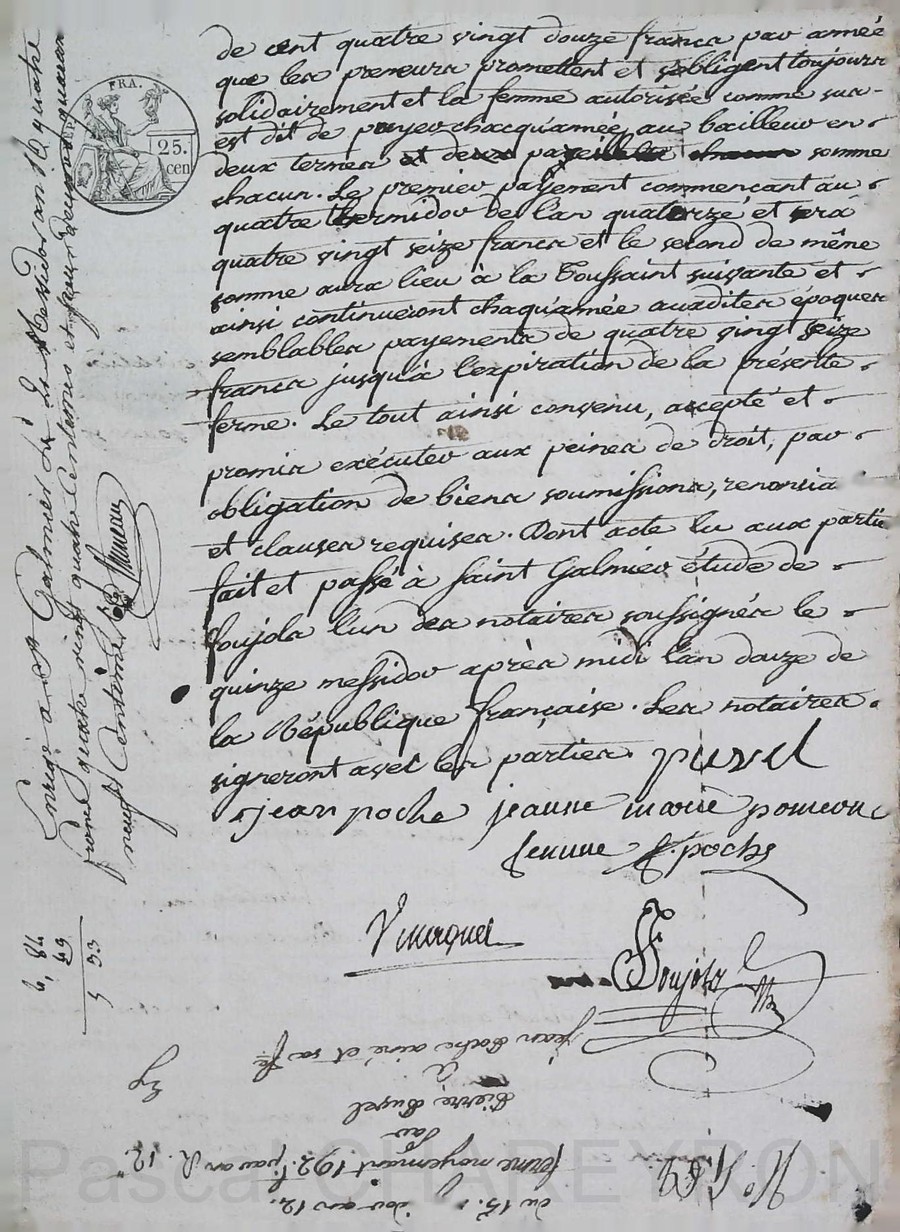 de cent quatre vingt douze francs par année
que les preneurs promettent et s'obligent toujours
solidairement et la femme autorisée comme sus-
est dit de payer chacqu'année, au bailleur en
deux termes somme
chacun. Le premier payement commencant au
quatre thermidor de l'an quatorze et sera
quatre vingt seize francs et le second de même
somme aura lieu à la Toussaint suivante et
ainsi continueront chaqu'année auxdites époques
semblables payements de quatre vingt seize
francs jusqu'à l'expiration de la présente
ferme. Le tout ainsi convenu, accepté et
promis exécuter aux peines de droit, par
obligation de biens soumissions, renoncia
et clauses requises. Dont acte lu aux partie
fait et passé à Saint Galmier étude de
Soujols l'un des notaires soussignés le
quinze messidor après midi l'an douze de
la République française. Les notaires
signeront avec les parties. puvel
jean poche jeanne marie
femme poche
Soujols
FRA.
25.
cen
à St Galmier le messidor an 12
francs quatre vingt quatre centimes et
neuf centimes
6, 84
69
5 33
du 15. dor an 12.
ferme moyennant 192 f par an R. 12.
par
Pierre Puvel
à
jean Poche ainé et sa fe
Pascal CHAREYRON